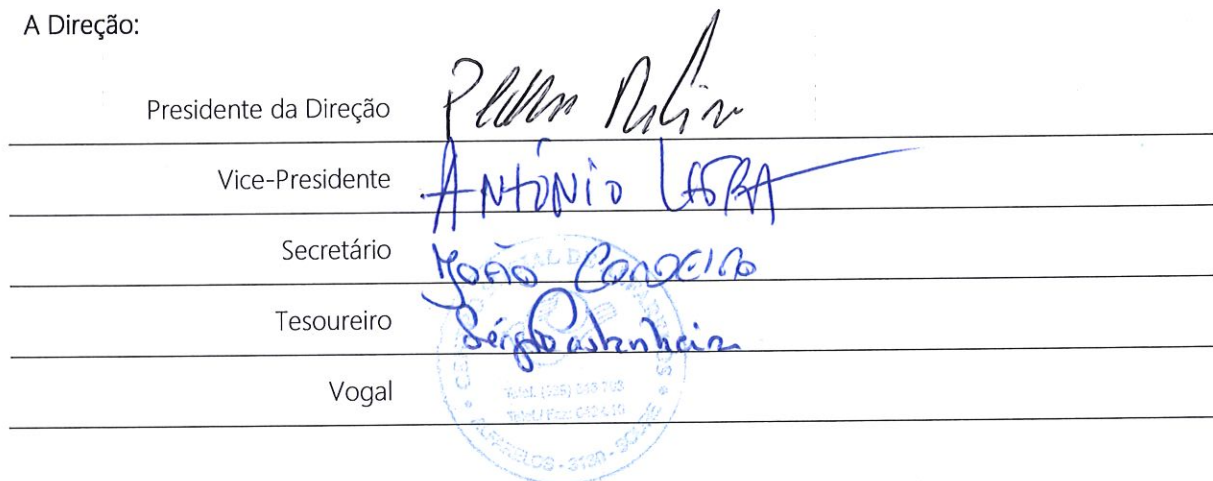 A Direção:
Presidente da Direção
Vice-Presidente António
Secretário João Cordeiro
Tesoureiro Sérgio Castanheira
Vogal
ALFARELOS - 3130 - SOURE